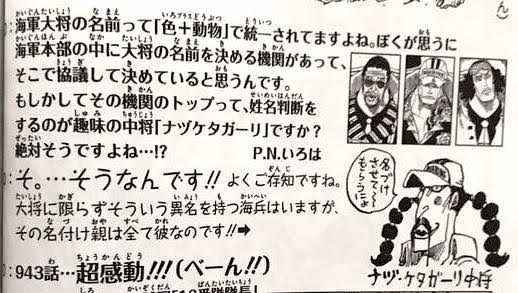 海軍大将の名前って「色＋動物」で統一されてますよね。ぼくが思うに
海軍本部の中に大将の名前を決める機関があって、
そこで協議して決めていると思うんです。
もしかしてその機関のトップって、姓名判断を
するのが趣味の中将「ナヅケタガーリ」ですか？
絶対そうですよね…!? P.N.いろは
そ。…そうなんです!! よくご存知ですね。
大将に限らずそういう異名を持つ海兵はいますが、
その名付け親は全て彼なのです!!➡
943話…超感動!!!(べーん!!)
名づけ
させて〜
もらうにょ
ナヅ・ケタガーリ中将